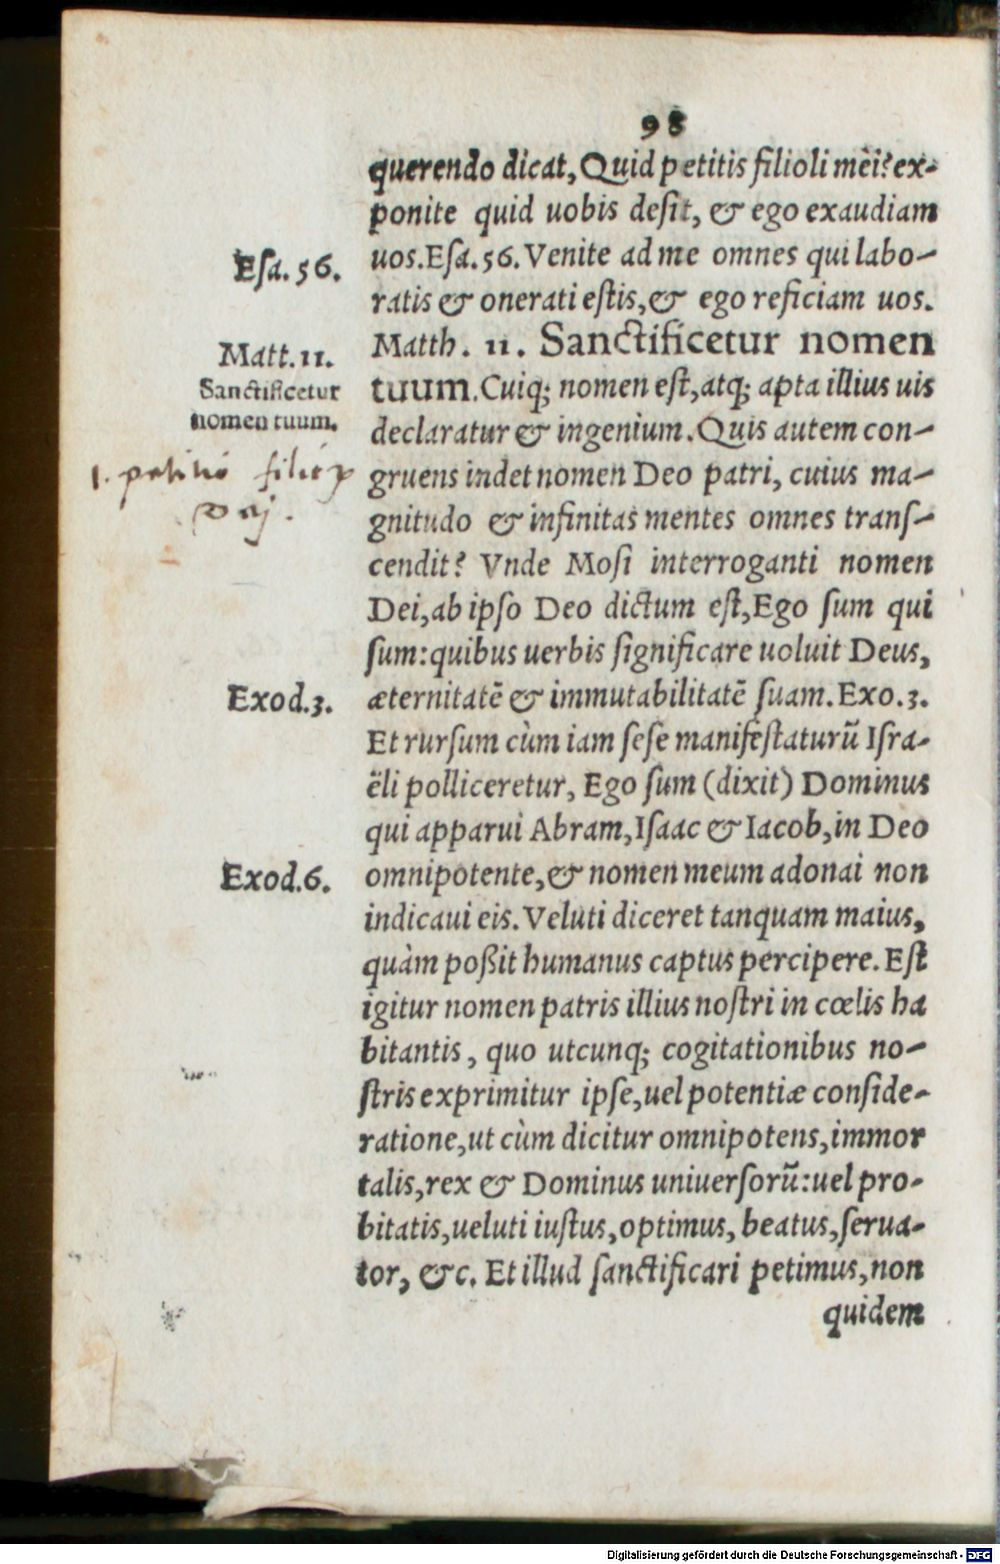 98
querendo dicat, Quid petitis filioli mei? ex-
ponite quid uobis desit, & ego exaudiam
Esa. 56.
uos. Esa. 56. Venite ad me omnes qui labo-
ratis & onerati estis, & ego reficiam uos.
Matt. 11.
Matth. 11. Sanctificetur nomen
Sanctificetur
nomen tuum.
tuum. Cuiq; nomen est, atq; apta illius uis
declaratur & ingenium. Quis autem con-
1. petitio filiorum
Dei.
gruens indet nomen Deo patri, cuius ma-
gnitudo & infinitas mentes omnes trans-
cendit? Vnde Mosi interroganti nomen
Dei, ab ipso Deo dictum est, Ego sum qui
sum: quibus uerbis significare uoluit Deus,
Exod. 3.
æternitatē & immutabilitatē suam. Exo. 3.
Et rursum cùm iam sese manifestaturū Isra-
ëli polliceretur, Ego sum (dixit) Dominus
qui apparui Abram, Isaac & Iacob, in Deo
Exod. 6.
omnipotente, & nomen meum adonai non
indicaui eis. Veluti diceret tanquam maius,
quàm poßit humanus captus percipere. Est
igitur nomen patris illius nostri in cœlis ha
bitantis, quo utcunq; cogitationibus no-
stris exprimitur ipse, uel potentiæ conside-
ratione, ut cùm dicitur omnipotens, immor
talis, rex & Dominus uniuersorū: uel pro-
bitatis, ueluti iustus, optimus, beatus, serua-
tor, &c. Et illud sanctificari petimus, non
quidem
Digitalisierung gefördert durch die Deutsche Forschungsgemeinschaft - DFG